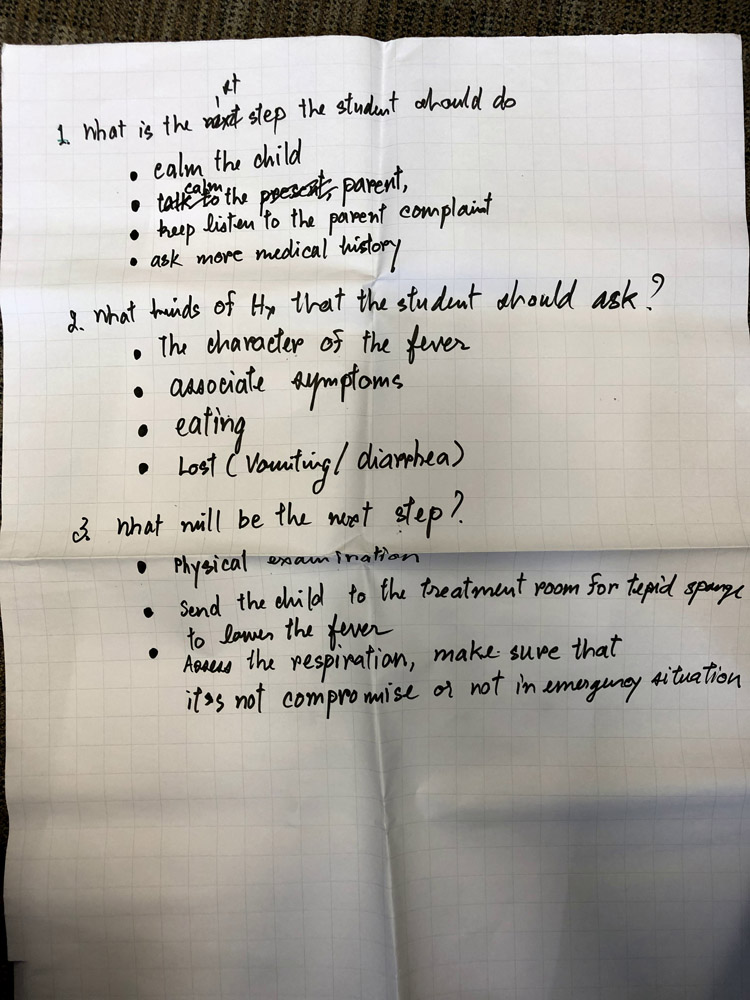 1. What is the 1st step the student should do
• calm the child
• calm the parent,
• keep listen to the parent complaint
• ask more medical history
2. What kinds of Hx that the student should ask?
• The character of the fever
• associate symptoms
• eating
• Lost (Vomiting / diarrhea)
3. What will be the next step?
• Physical examination
• Send the child to the treatment room for tepid sponge
to lower the fever
• Assess the respiration, make sure that
it's not compromise or not in emergency situation